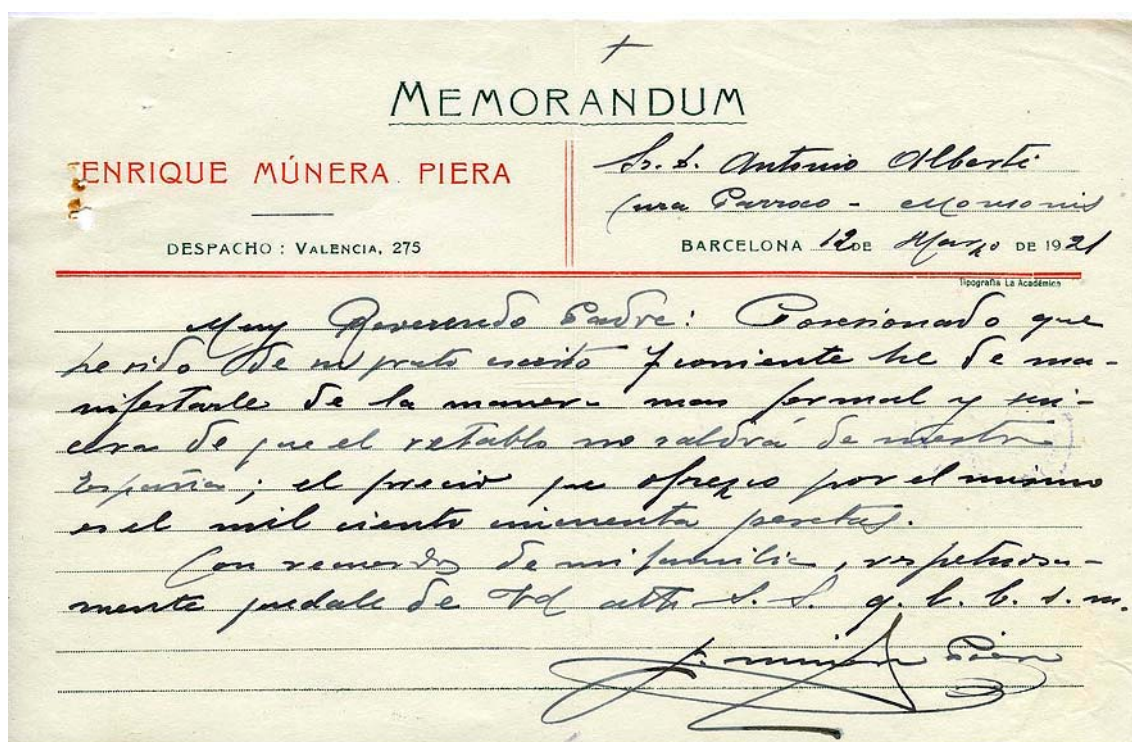 MEMORANDUM
ENRIQUE MÚNERA PIERA
DESPACHO: VALENCIA, 275
Sr. D. Antonio Alberti
Cura Parroco - Monsonis
BARCELONA 12 DE Marzo DE 1921
Tipografía La Académica
Muy Reverendo Padre: Posesionado que
he sido de su grato escrito 7 corriente he de ma-
nifestarle de la manera mas formal y sin-
cera de que el retablo no saldrá de nuestra
España; el precio que ofrezco por el mismo
es el mil ciento cincuenta pesetas.
Con recuerdos de mi familia, respetuosa-
mente quedale de Vd atto S. S. q. b. s. m.
E. Múnera Piera